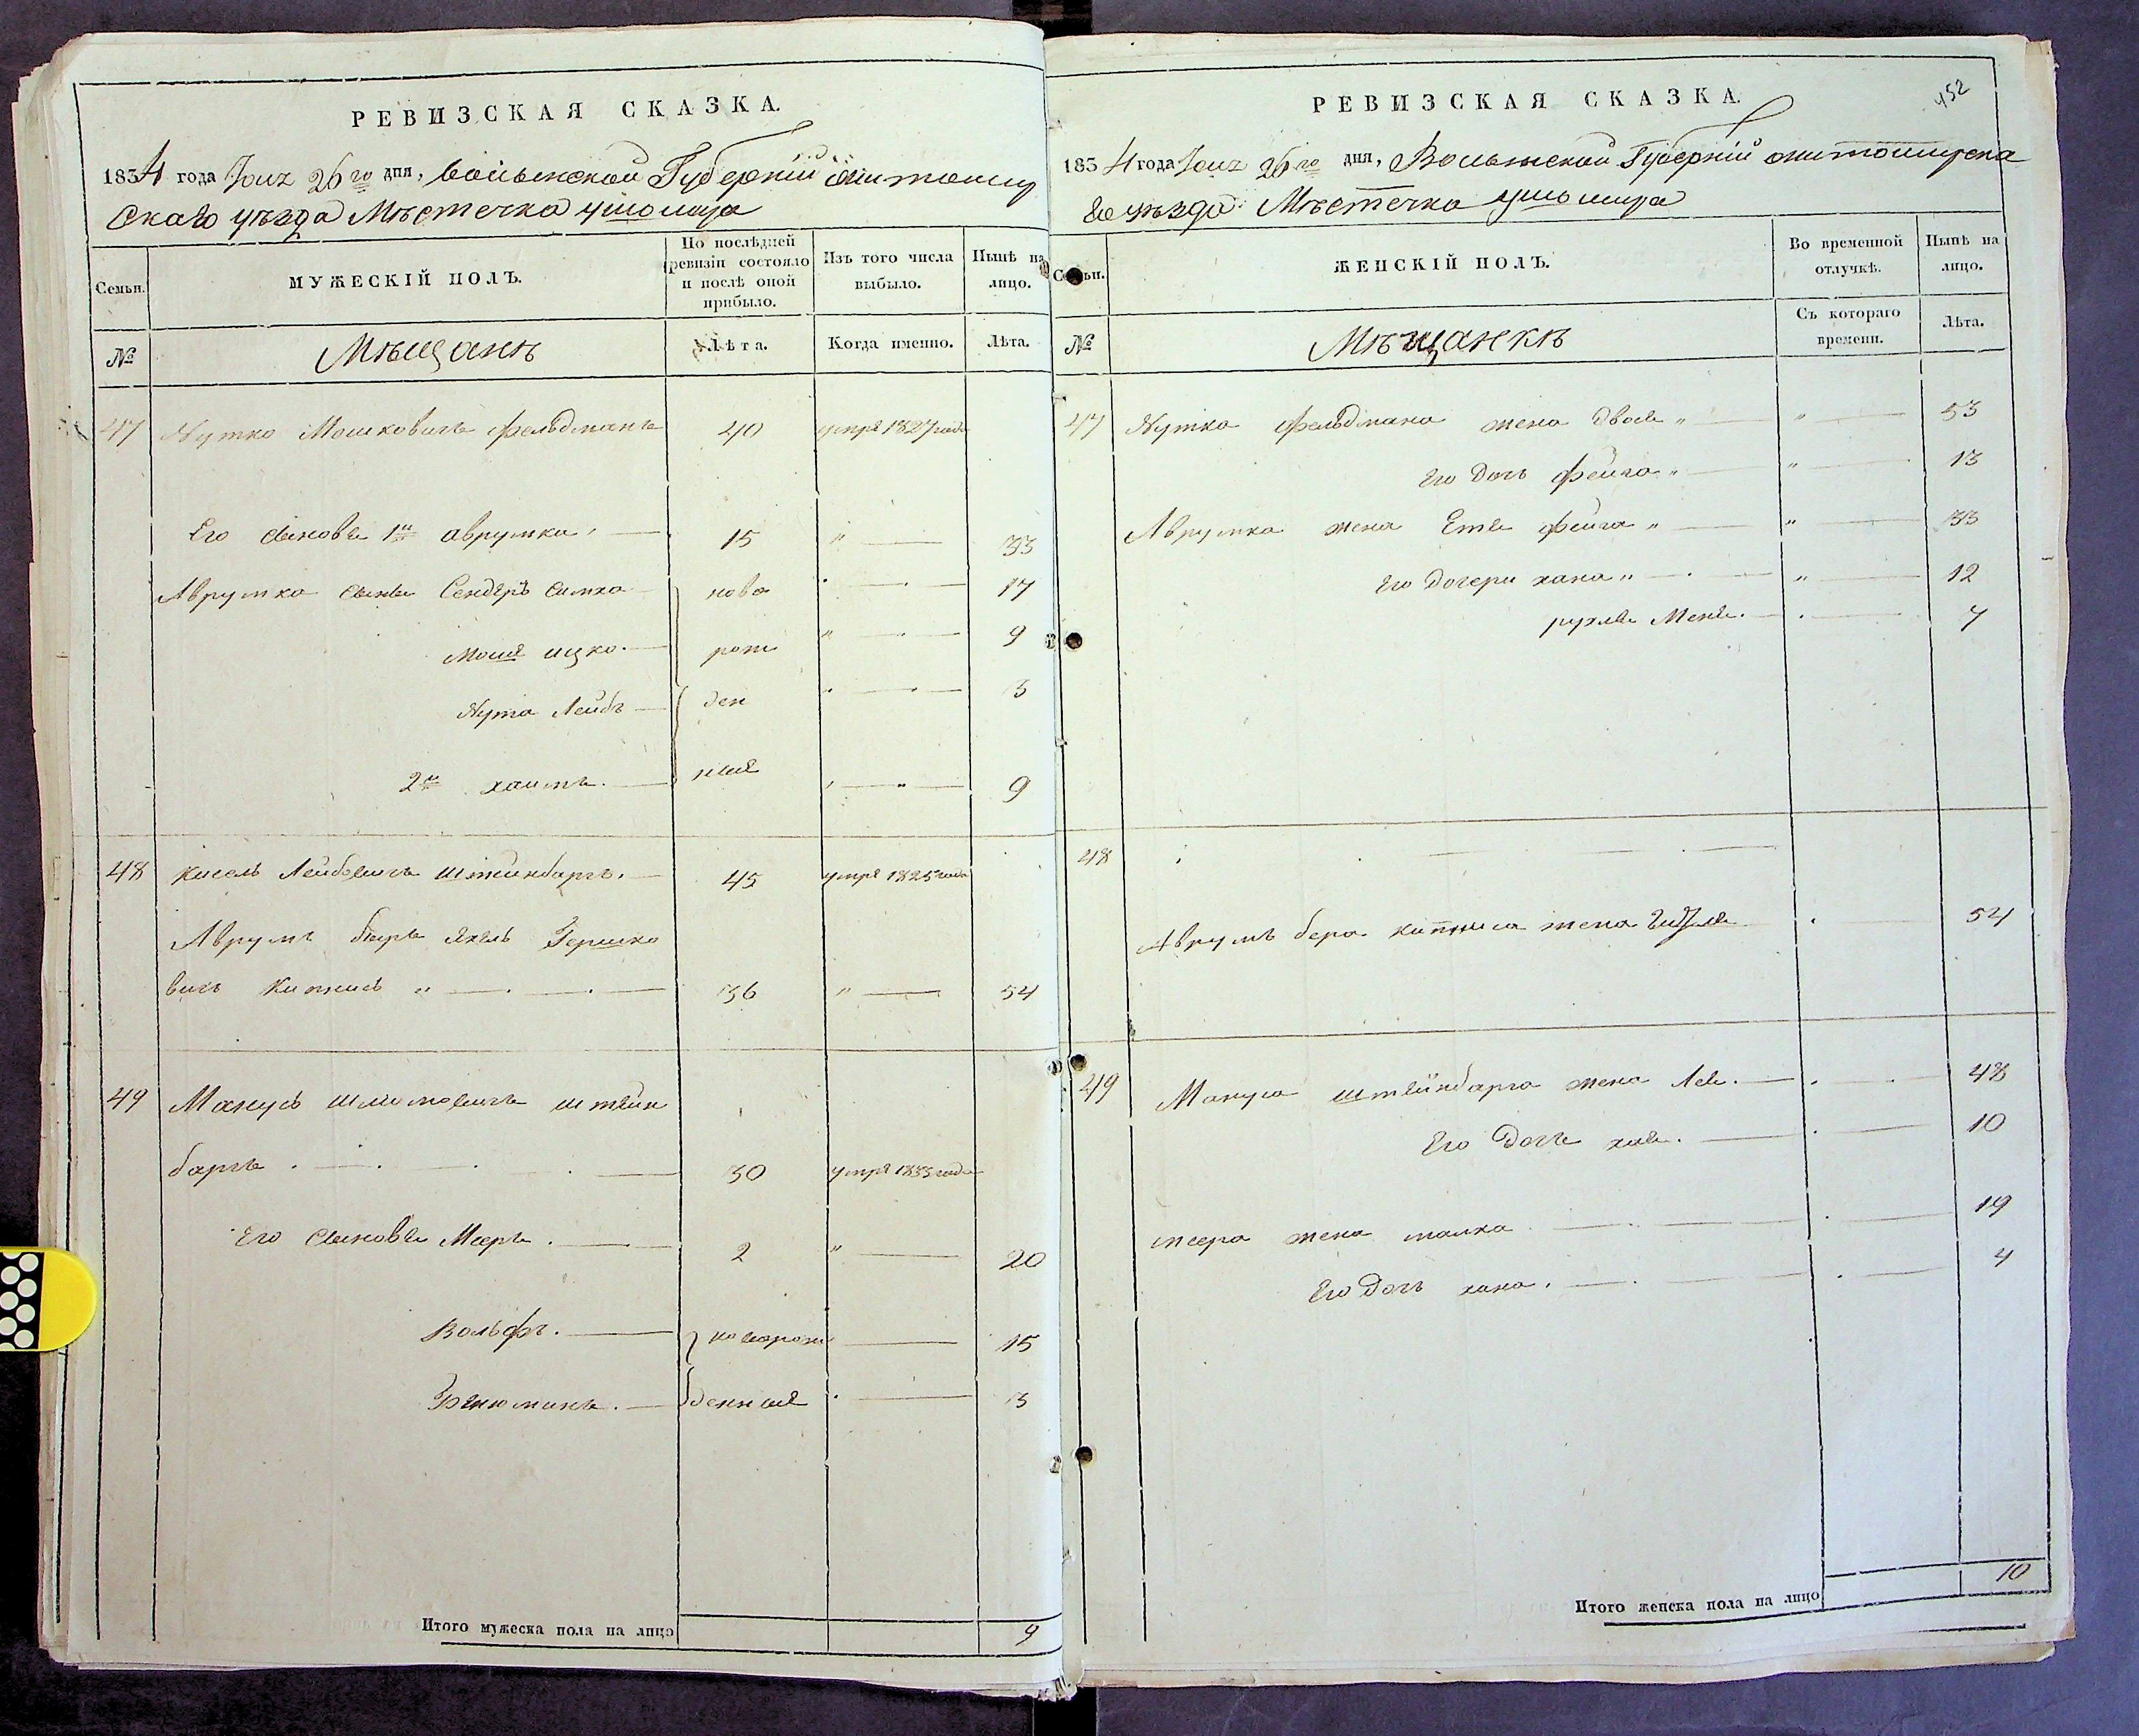 РЕВИЗСКАЯ СКАЗКА.
1834 года 26го дня, Губерніи
скаго уѣзда Мѣстечка Ушомира
Семьи.
МУЖЕСКІЙ ПОЛЪ.
По послѣдней ревизіи состояло и послѣ оной прибыло.
Изъ того числа выбыло.
Нынѣ на лицо.
№
Мѣщанѣ
Лѣта.
Когда именно.
Лѣта.
47 Нутко Мошковичъ Фельдманъ 40 умре 1827 года
Его сыновья 1й Аврумко 15 " 33
Аврумка сынъ Сендеръ Симха ново 17
Мошя Ицко рож " 9
Нута Лейбъ ден 3
2й Хаимъ ные 9
48 Кисель Лейбовичъ Штейнбаргъ. 45 умре 1825 года
Аврумъ Беръ Гершко
вичъ Кипнисъ " 36 " 54
49 Манусъ Шлиомовичъ Штейн
баргъ 30 умре 1833 года
Его сыновья Мееръ 2 " 20
Вольфъ. новорож 15
денные 3
Итого мужеска пола на лицо 9
452
РЕВИЗСКАЯ СКАЗКА.
1834 года 26го дня, Волынской Губерніи Житомирска
го уѣзда Мѣстечка Ушомира
Семьи.
ЖЕНСКІЙ ПОЛЪ.
Во временной отлучкѣ.
Нынѣ на лицо.
№
Мѣщанкѣ
Съ котораго времени.
Лѣта.
47 Нутка Фельдмана жена Двося " " 53
Его дочь Фейга " " 13
Аврумка жена Фейга " " 33
Его дочери Хана " " 12
Рухля 7
48
Аврумъ Бера Кипниса жена 54
49 Мануса Штейнбарга жена Лея. 48
Его дочь Хая. 10
Меера жена Малка 19
Его дочь Хана. 4
Итого женска пола на лицо 10